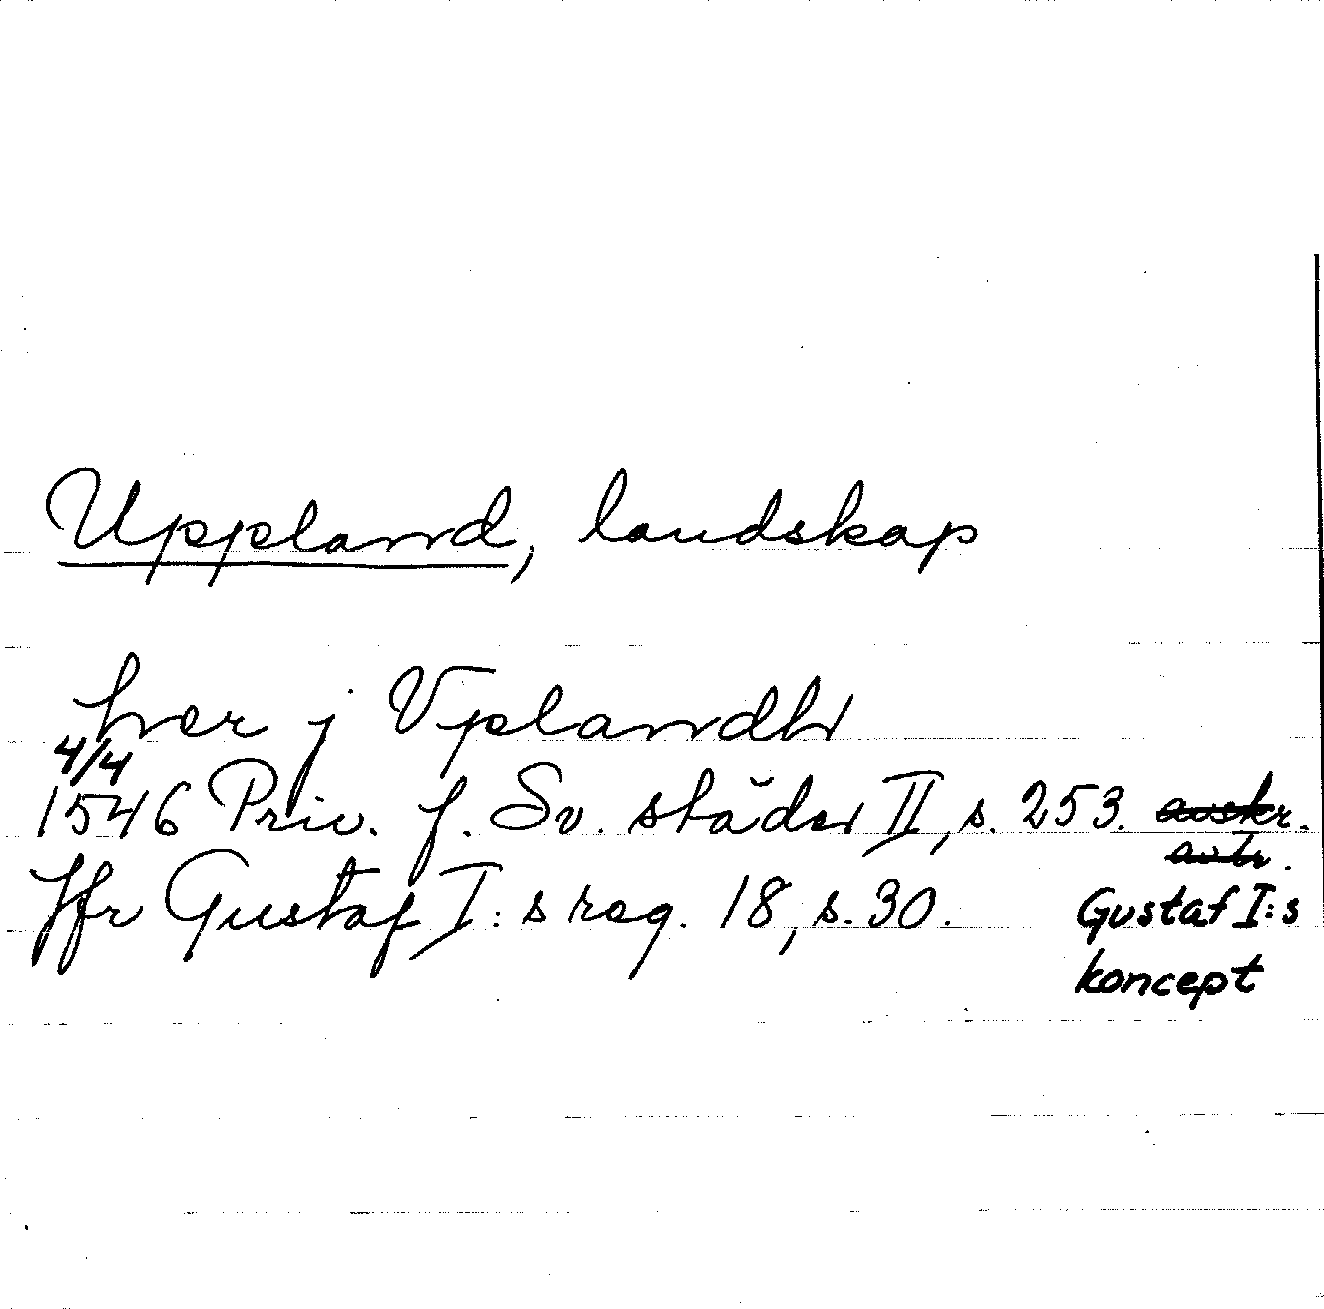 Uppland, landskap
hver j Vplandh
4/4
1546 Priv. f. Sv. städer II, s. 253. avskr.
avtr.
Jfr Gustaf I:s reg. 18, s. 30. Gustaf I:s
koncept